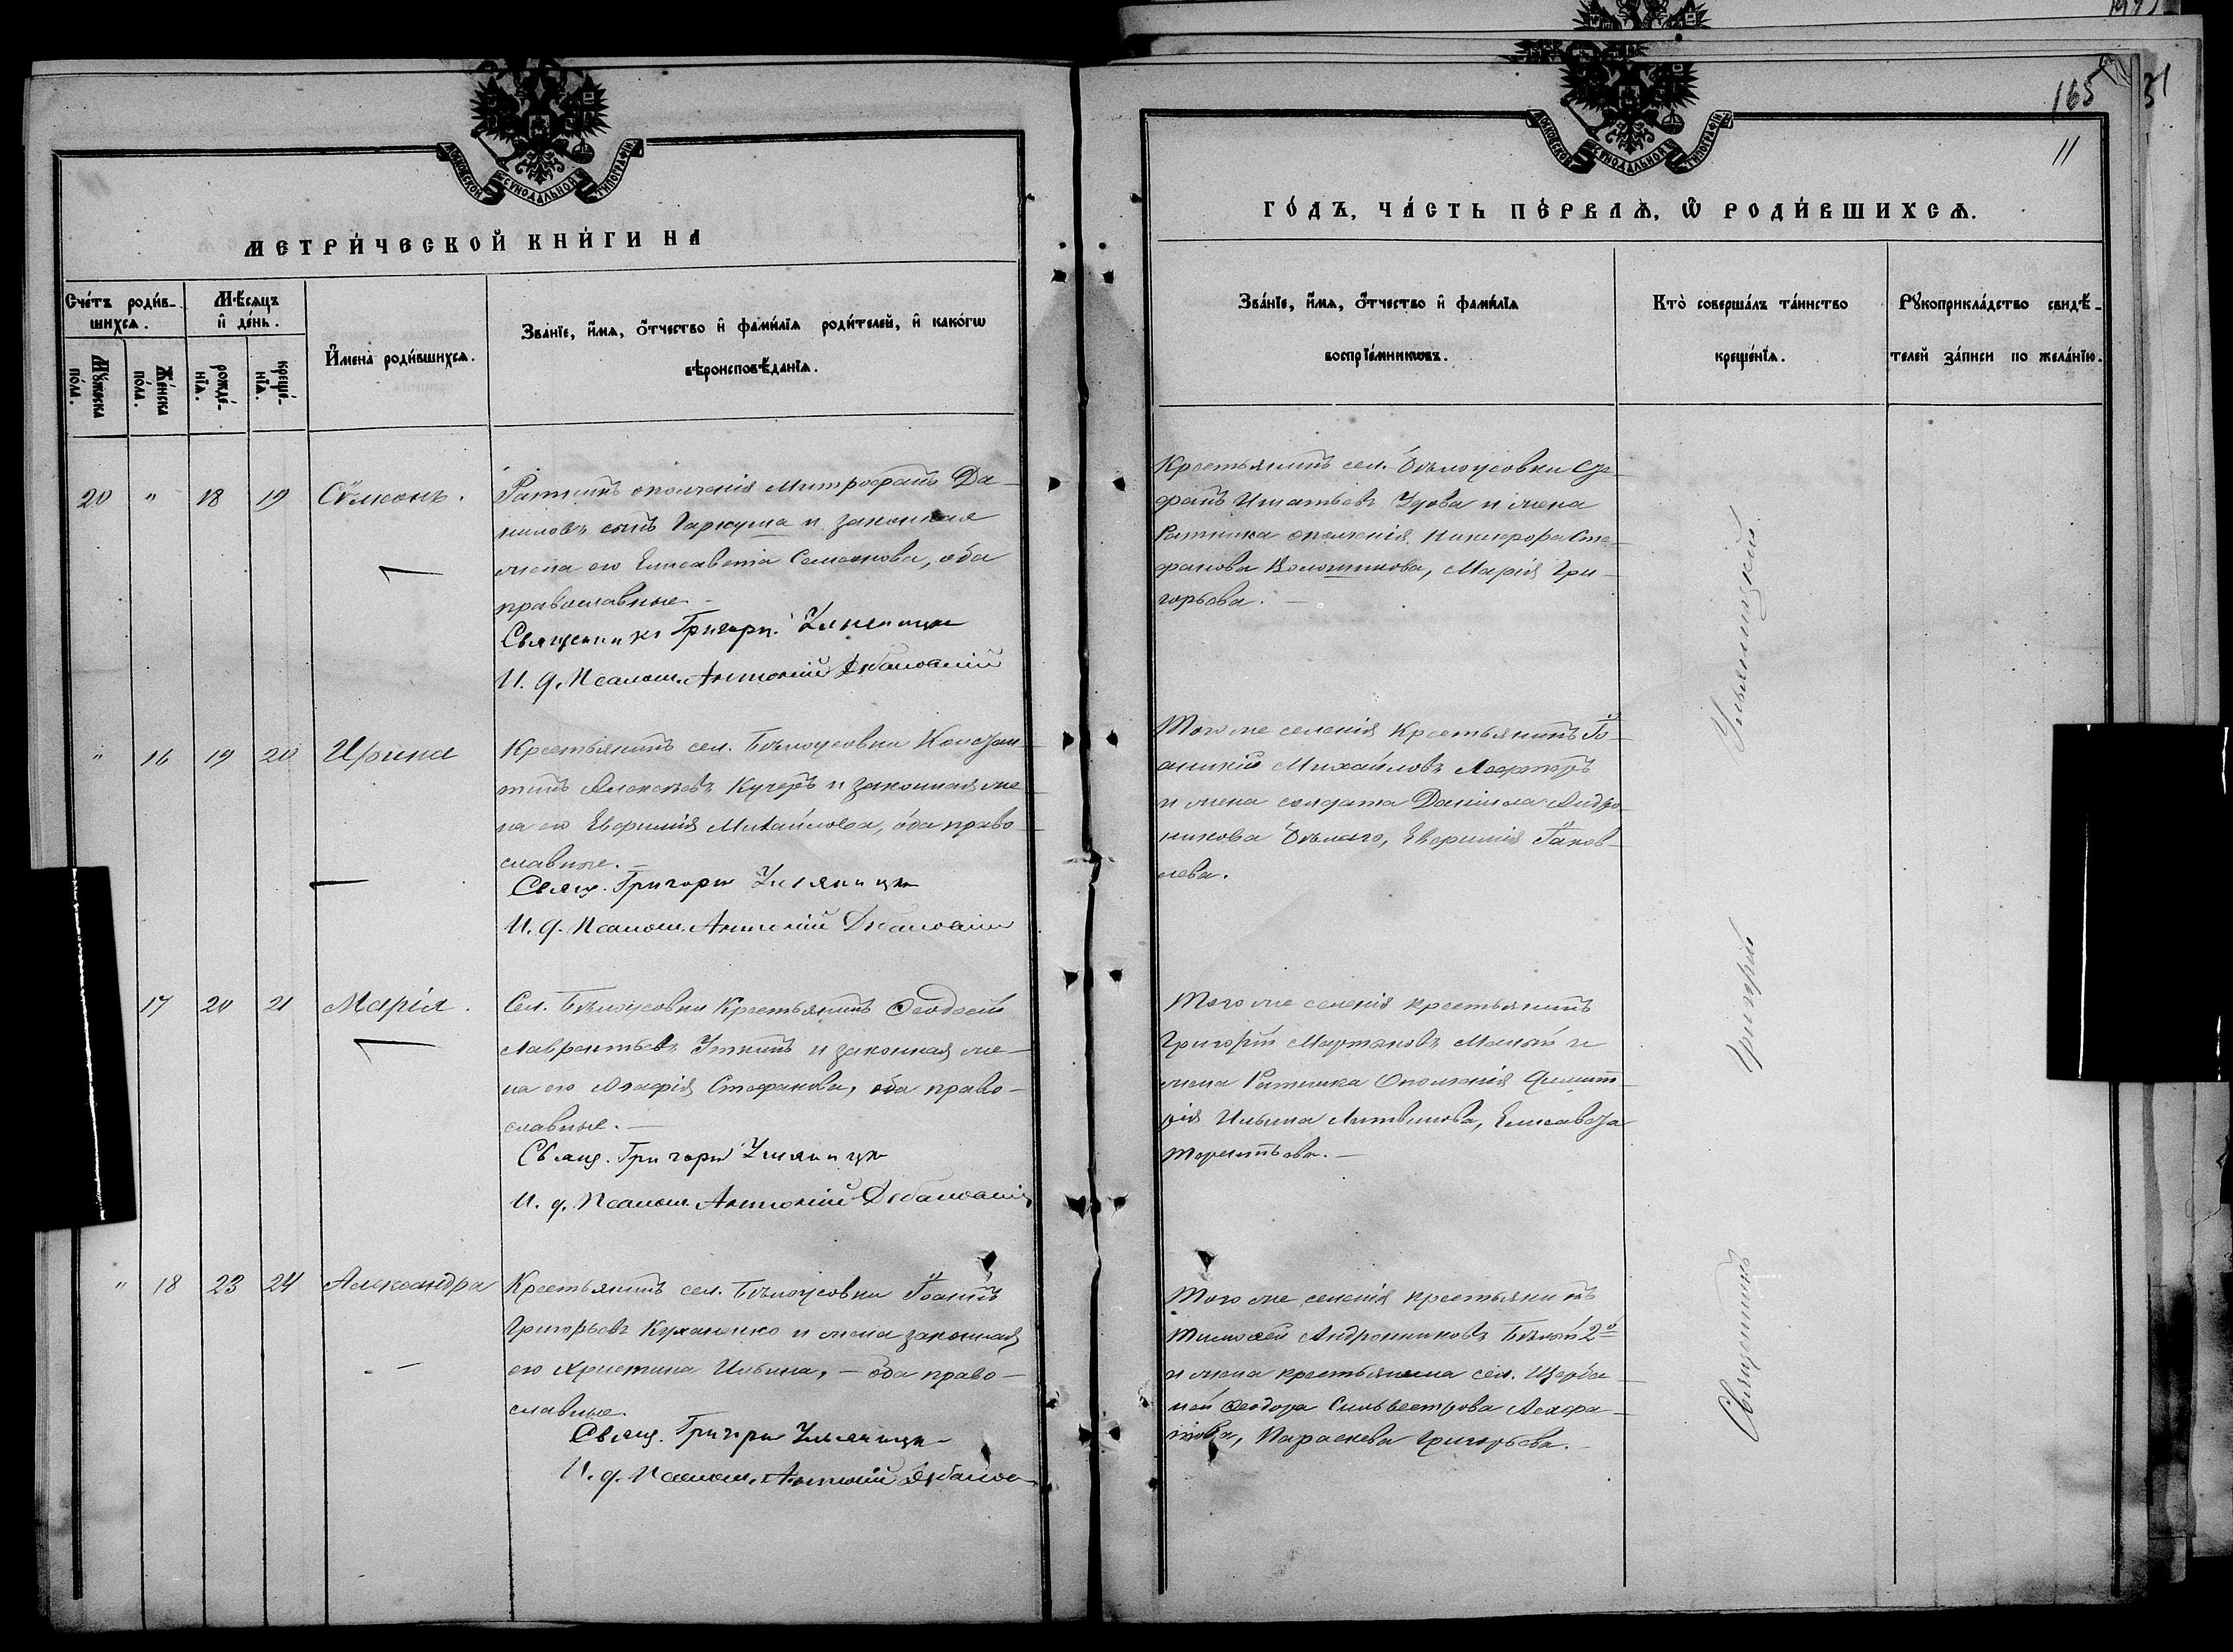 165
31
11
МОСКОВСКОЙ СѴНОДАЛЬНОЙ ТИПОГРАФІИ
МОСКОВСКОЙ СѴНОДАЛЬНОЙ ТИПОГРАФІИ
МЕТРИ́ЧЕСКОЙ КНИ́ГИ НА
ГО́ДЪ, ЧА́СТЬ ПЕ́РВАѦ, Ѡ҆ РОДИ́ВШИХСѦ.
Сче́тъ роди́в-
шихсѧ.
Мꙋ́жеска по́ла.
Же́нска по́ла.
Мѣ́сѧцъ
и҆ де́нь.
рожде́-
нїѧ.
креще́-
нїѧ.
И҆мена̀ роди́вшихсѧ.
Зва́нїе, и҆́мѧ, ѻ҆́тчество и҆ фами́лїѧ роди́телей, и҆ како́гѡ
вѣроисповѣ́данїѧ.
Зва́нїе, и҆́мѧ, ѻ҆́тчество и҆ фами́лїѧ
воспрїе́мникѡвъ.
Кто̀ соверша́лъ та́инство
креще́нїѧ.
Рꙋкоприкла́дство свидѣ́-
телей за́писи по жела́нїю.
20 " 18 19 Сѵмеонъ.
Ратникъ ополченія Митрофанъ Да-
ниловъ сынъ Гаркуша и законная
жена его Елисавета Семенова, оба
православные.
Священникъ Григорій
И. д. Псаломщ. Антоній
Крестьянинъ сел. Бѣлоусовки Сте-
фанъ Игнатьевъ Удова и жена
Ратника ополченія Никифора Сте-
фанова Колотникова, Марія Гри-
горьева.
" 16 19 20 Ирина
Крестьянинъ сел. Бѣлоусовки Констан-
тинъ Алексѣевъ Кучеръ и законная же-
на его Евфимія Михайлова, оба право-
славные.
Свящ. Григорій
И. д. Псаломщ. Антоній
Того же селенія Крестьянинъ Іо-
аникій Михайловъ
и жена солдата Даніила Андро-
никова Бѣлаго, Евфимія Іаков-
лева.
17 20 21 Марія.
Сел. Бѣлоусовки Крестьянинъ Ѳеодосій
Лаврентьевъ Уткинъ и законная же-
на его Агафія Стефанова, оба право-
славные.
Свящ. Григорій
И. д. Псаломщ. Антоній
Того же селенія крестьянинъ
Григорій Мартиновъ Малый и
жена Ратника Ополченія Димит-
рія Ильина Литвинова, Елисавета
Терентьева.
" 18 23 24 Александра
Крестьянинъ сел. Бѣлоусовки Іоаннъ
Григорьевъ Куханенко и жена законная
его Христина Ильина, - оба право-
славные.
Свящ. Григорій
И. д. Псаломщ. Антоній
Того же селенія крестьянинъ
Тимоѳей Андрониковъ Бѣлый 2й
и жена крестьянина сел. Щерба-
ней Ѳеодора Сильвестрова
Параскева Григорьева.
Священникъ Григорій